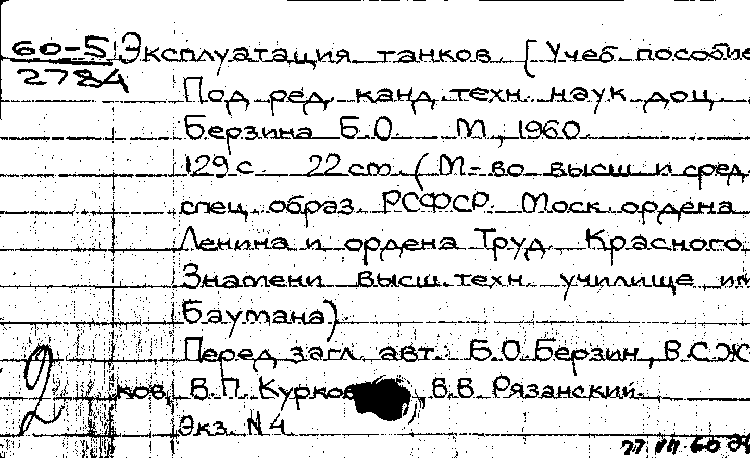 60-5 Эксплуатация танков. [Учеб. пособие
2784 Под ред. канд. техн. наук доц.
Берзина Б.О. М., 1960.
129 с. 22 см. (М-во высш. и сред.
спец. образ. РСФСР. Моск. ордена
Ленина и ордена Труд. Красного
Знамени высш. техн. училище им
Баумана)
Перед загл. авт.: Б.О. Берзин, В.С. Ж
ков, В.П. Курков, В.В. Рязанский.
Экз. N 4
2